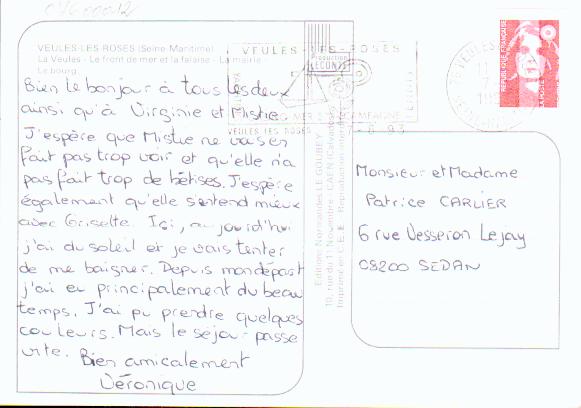 VEULES-LES-ROSES (Seine-Maritime)
La Veules - Le front de mer et la falaise - La mairie -
Le bourg
Bien le bonjour à tous les deux
ainsi qu'à Virginie et Mistie
J'espère que Mistie ne vous en
fait pas trop voir et qu'elle n'a
pas fait trop de bêtises. J'espère
également qu'elle s'entend mieux
avec Grisette. Ici, aujourd'hui
j'ai du soleil et je vais tenter
de me baigner. Depuis mon départ
j'ai eu principalement du beau
temps. J'ai pu prendre quelques
couleurs. Mais le séjour passe
vite. Bien amicalement
Véronique
VEULES-LES-ROSES
VEULES LES ROSES
Production
LECONTE
Editions Normandes LE GOUBEY
10, rue du 11 Novembre - CAEN (Calvados)
Imprimé en C.E.E. Reproduction interdite
REPUBLIQUE FRANÇAISE
LA POSTE
Monsieur et Madame
Patrice CARLIER
6 rue Vesseron Lejay
08200 SEDAN